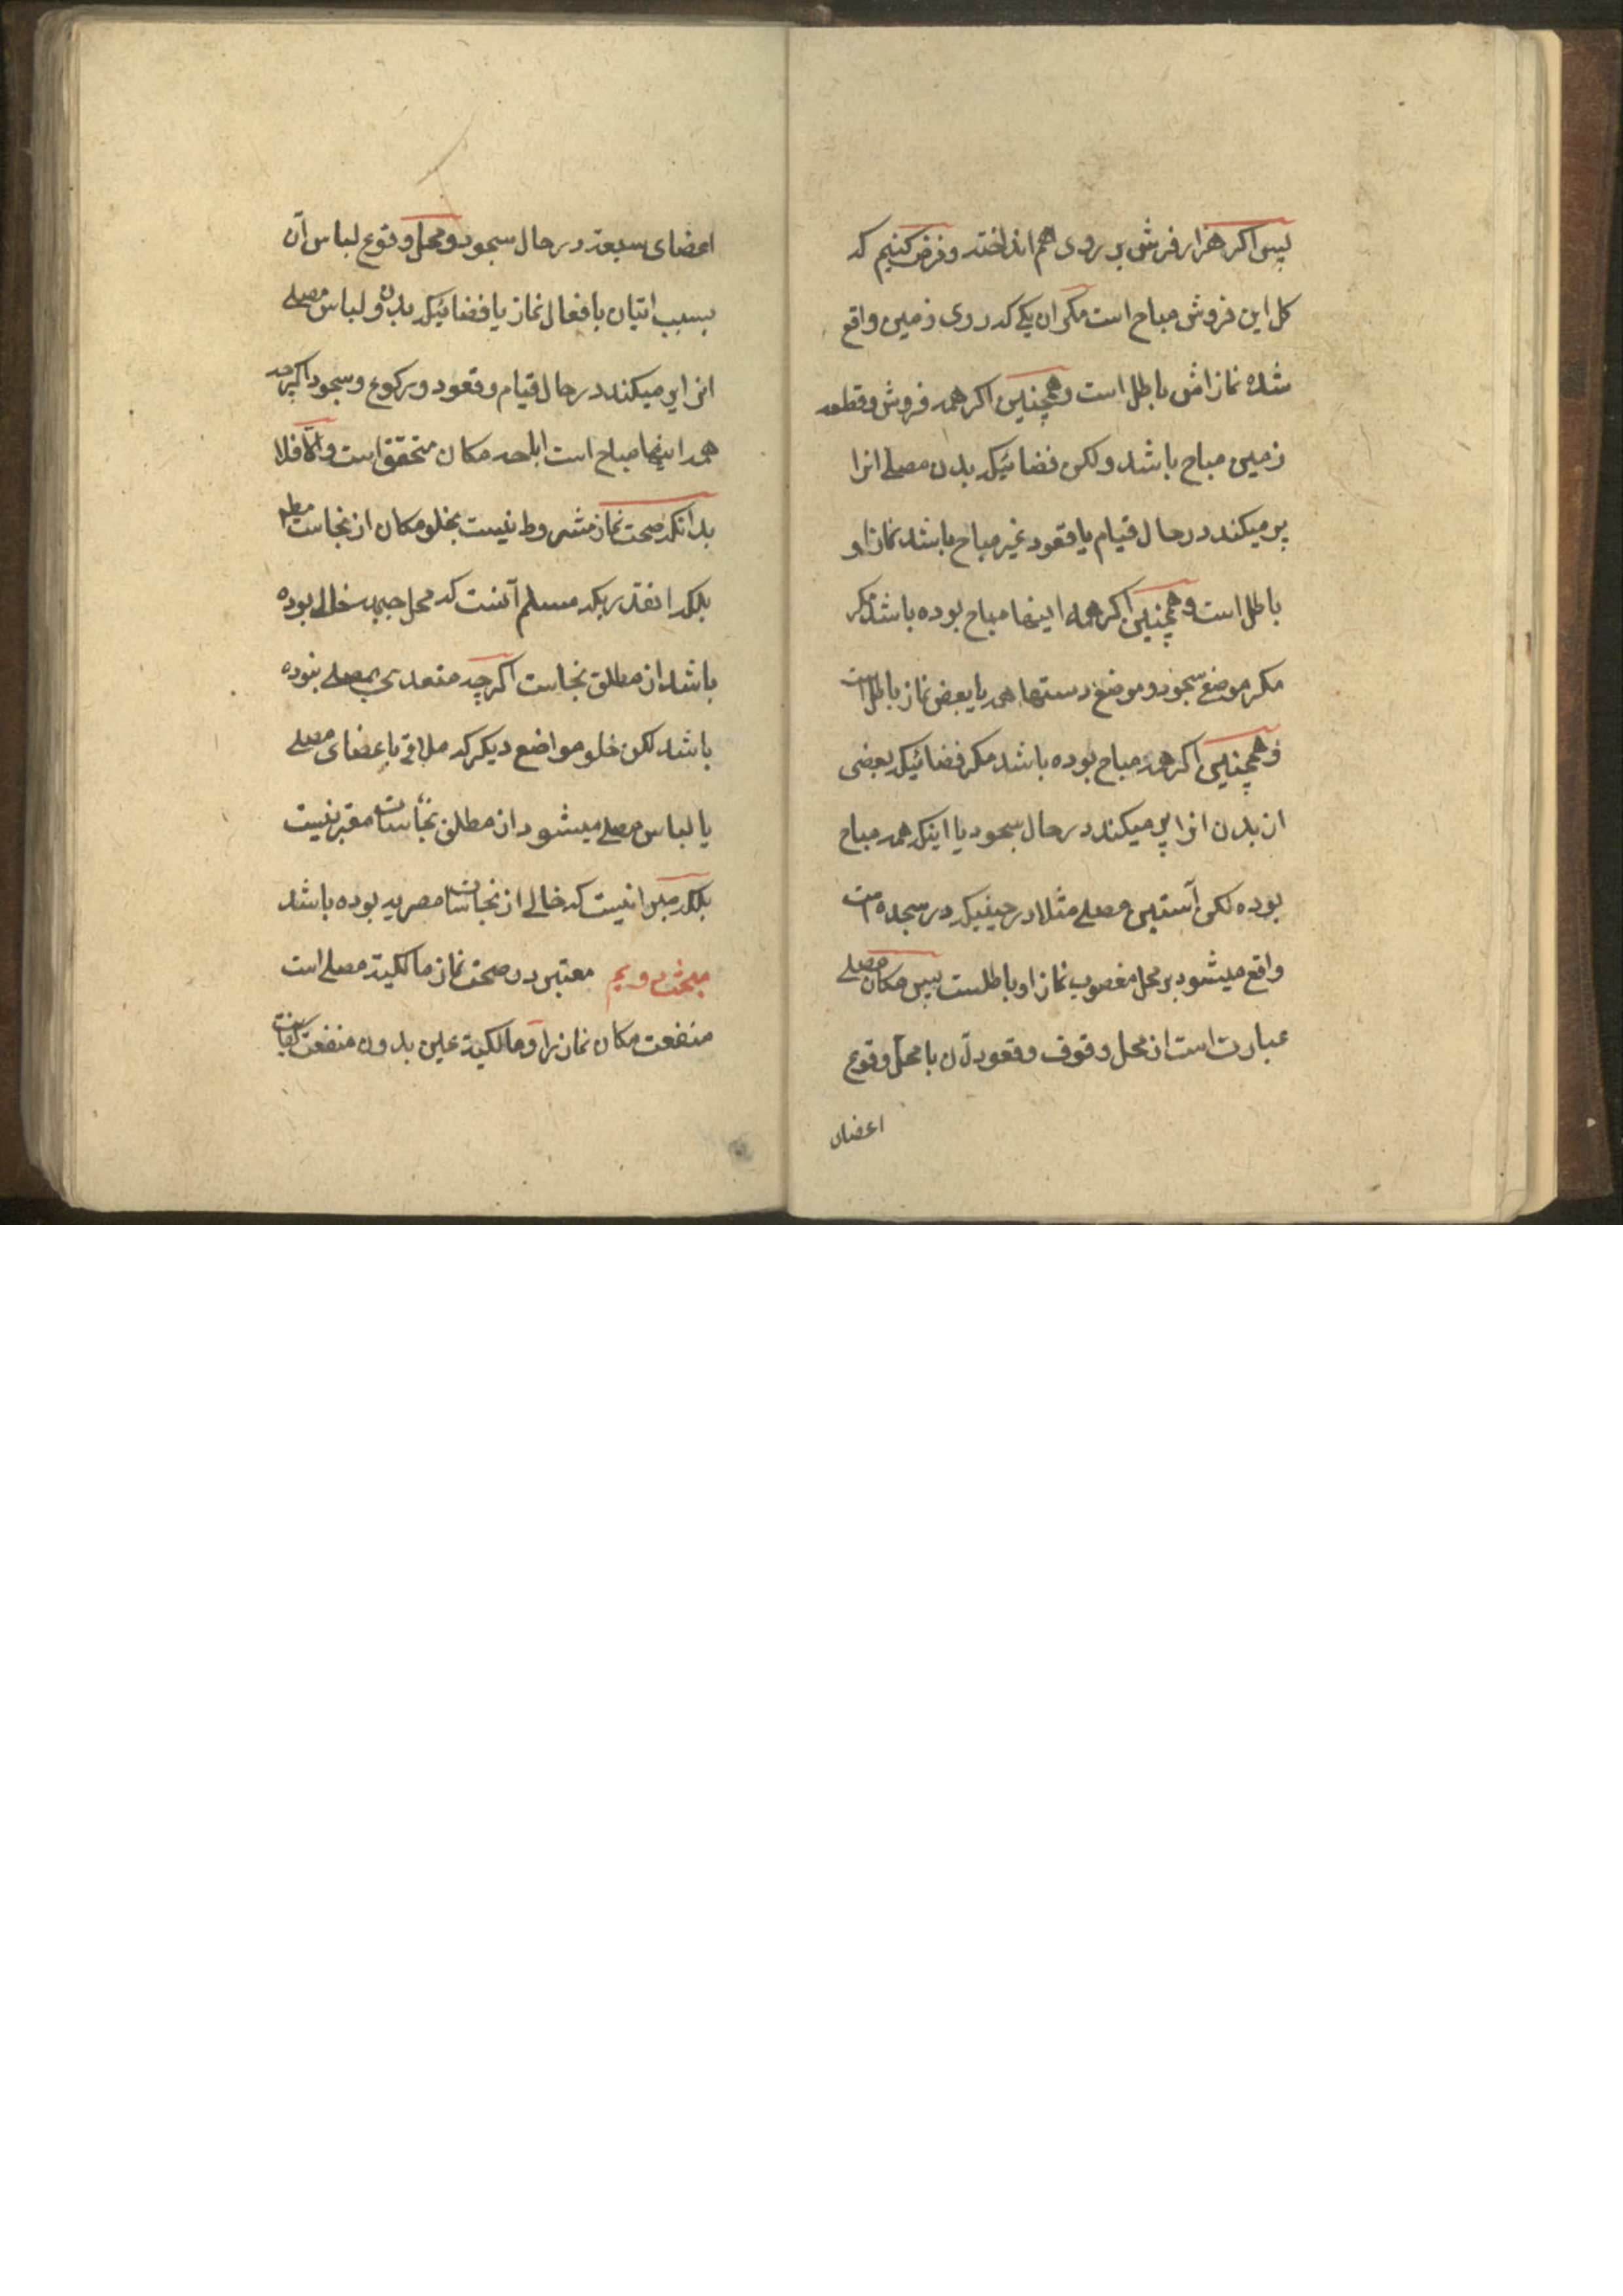 پس اکر هزار فرش بر روی هم انداخته و فرض کنیم که
کل این فروش مباح است مکر ان یکی که در روی زمین واقع
شده نمازاش باطل است و همچنین اکر همه فروش و قطعه
زمین مباح باشد و لکن فضائیکه بدن مصلی انرا
پر میکند در حال قیام یا قعود غیر مباح باشد نماز او
باطل است و همچنین اکر همه اینها مباح بوده باشد مکر
مکر موضع سجود و موضع دستها همه یا بعض نماز باطل است
و همچنین اکر همه مباح بوده باشد مکر فضائیکه بعضی
از بدن انرا پر میکند در حال سجود یا اینکه همه مباح
بوده لکن آستین مصلی مثلا در حینیکه در سجده است
واقع میشود بر محل مغصوب نماز او باطلست پس مکان مصلی
عبارت است از محل وقوف و قعود آن با محل وقوع
اعضای
اعضای سبعه در حال سجود و محل وقوع لباس آن
بسبب اتیان بافعال نماز یا فضائیکه بدن و لباس مصلی
انرا پر میکند در حال قیام و قعود و رکوع و سجود اکر چه
همه اینها مباح است اباحه مکان متحقق است و الّا فلا
بدانکه صحت نماز مشروط نیست بخلو مکان از نجاست مطلقا
بلکه انقدریکه مسلم آنست که محل جبهه خالی بوده
باشد از مطلق نجاست اکر چه متعدی بمصلی نبوده
باشد لکن خلو مواضع دیکر که ملاقی باعضای مصلی
یا لباس مصلی میشود از مطلق نجاسات معتبر نیست
بلکه معتبر انیست که خالی از نجاسات مصریه بوده باشد
مبحث دویم معتبر در صحت نماز مالکیة مصلی است
منفعت مکان نماز را و مالکیة عین بدون منفعت کفایت